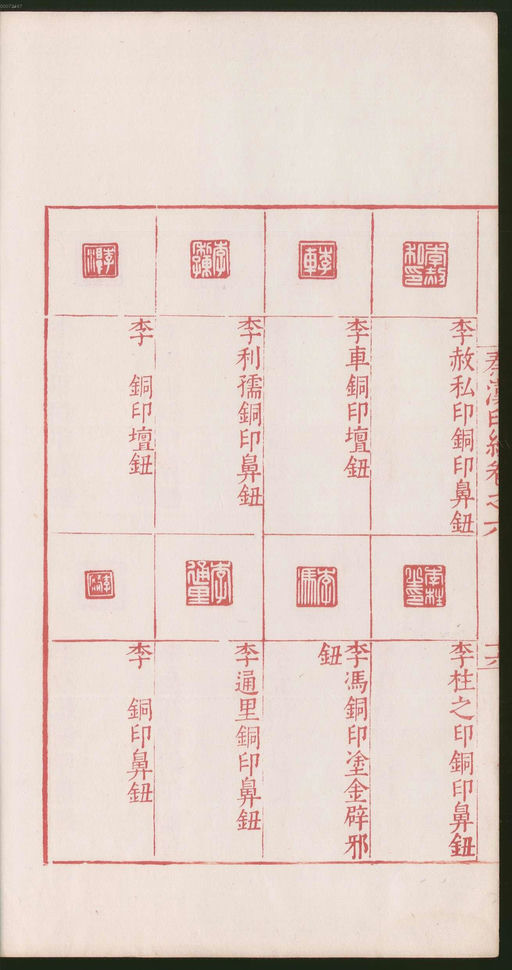 李赦私印銅印鼻鈕
李車銅印壇鈕
李利孺銅印鼻鈕
李　銅印壇鈕
李柱之印銅印鼻鈕
李馮銅印塗金辟邪
鈕
李通里銅印鼻鈕
李　銅印鼻鈕